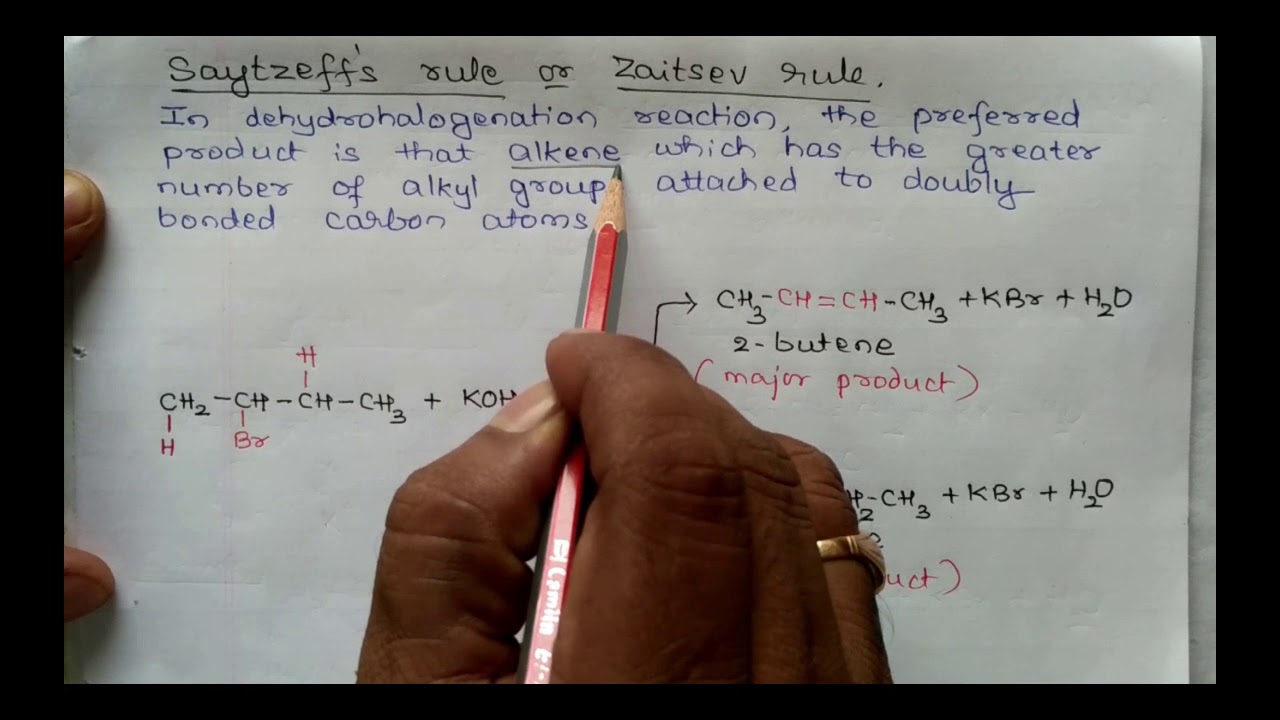 Saytzeff's rule or Zaitsev rule.
In dehydrohalogenation reaction, the preferred
product is that alkene which has the greater
number of alkyl group attached to doubly
bonded carbon atoms
CH3-CH=CH-CH3 +KBr + H2O
2-butene
(major product)
H
CH2-CH-CH-CH3 + KOH
H Br
-CH3 +KBr + H2O
Camlin